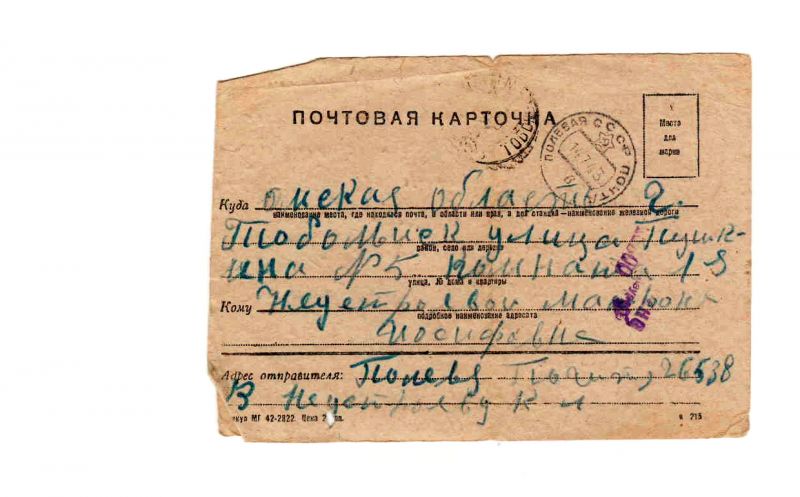 ПОЧТОВАЯ КАРТОЧКА
ПОЛЕВАЯ ПОЧТА СССР
Место
для
марки
Куда омская область г.
наименование места, где находится почта, и области или края, а для станций—наименование железной дороги
Тобольск улица Пушк-
район, село или деревня
ина №5 комната
улица, № дома и квартиры
Кому Неустроевой
подробное наименование адресата
Иосифовне
Адрес отправителя: Полевая 26538
В
МГ 42-2822. Цена
215